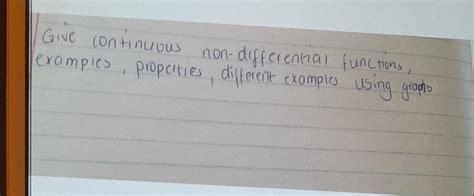 Give continuous non-differential functions,
examples, properties, different examples using graphs